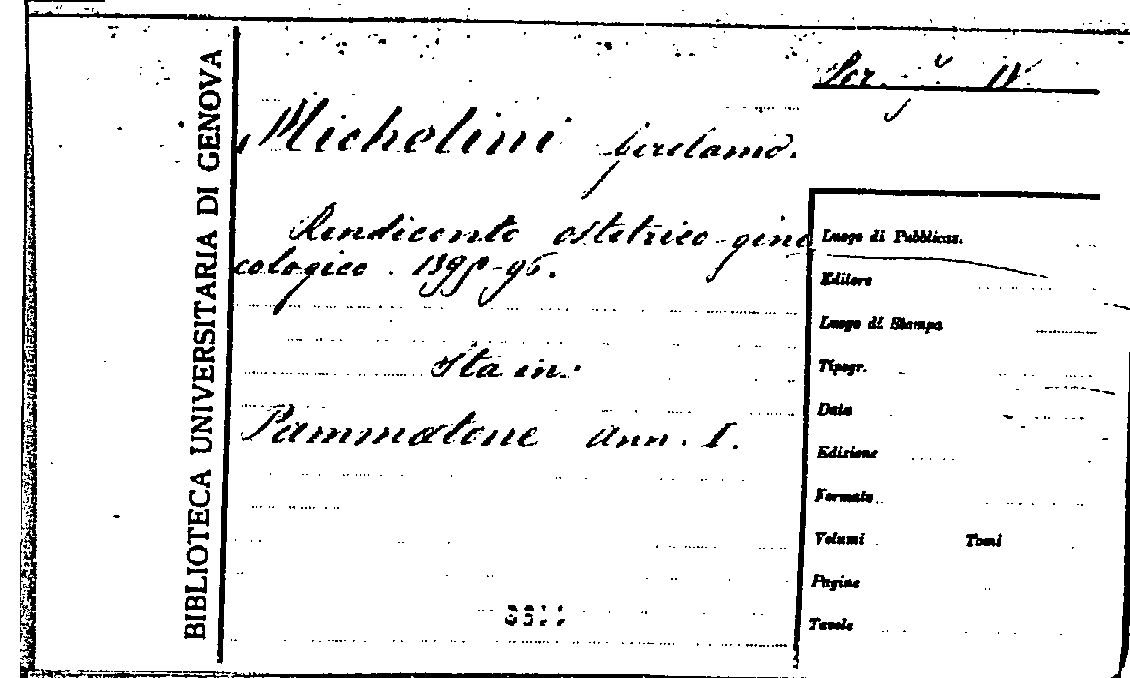 BIBLIOTECA UNIVERSITARIA DI GENOVA
Ser. IV
Michelini Girolamo.
Rendiconto ostetrico-gine
cologico. 1895-96.
Sta in:
Pammatone ann. I.
Luogo di Pubblicaz.
Editore
Luogo di Stampa
Tipogr.
Data
Edizione
Formato
Volumi Tomi
Pagine
Tavole